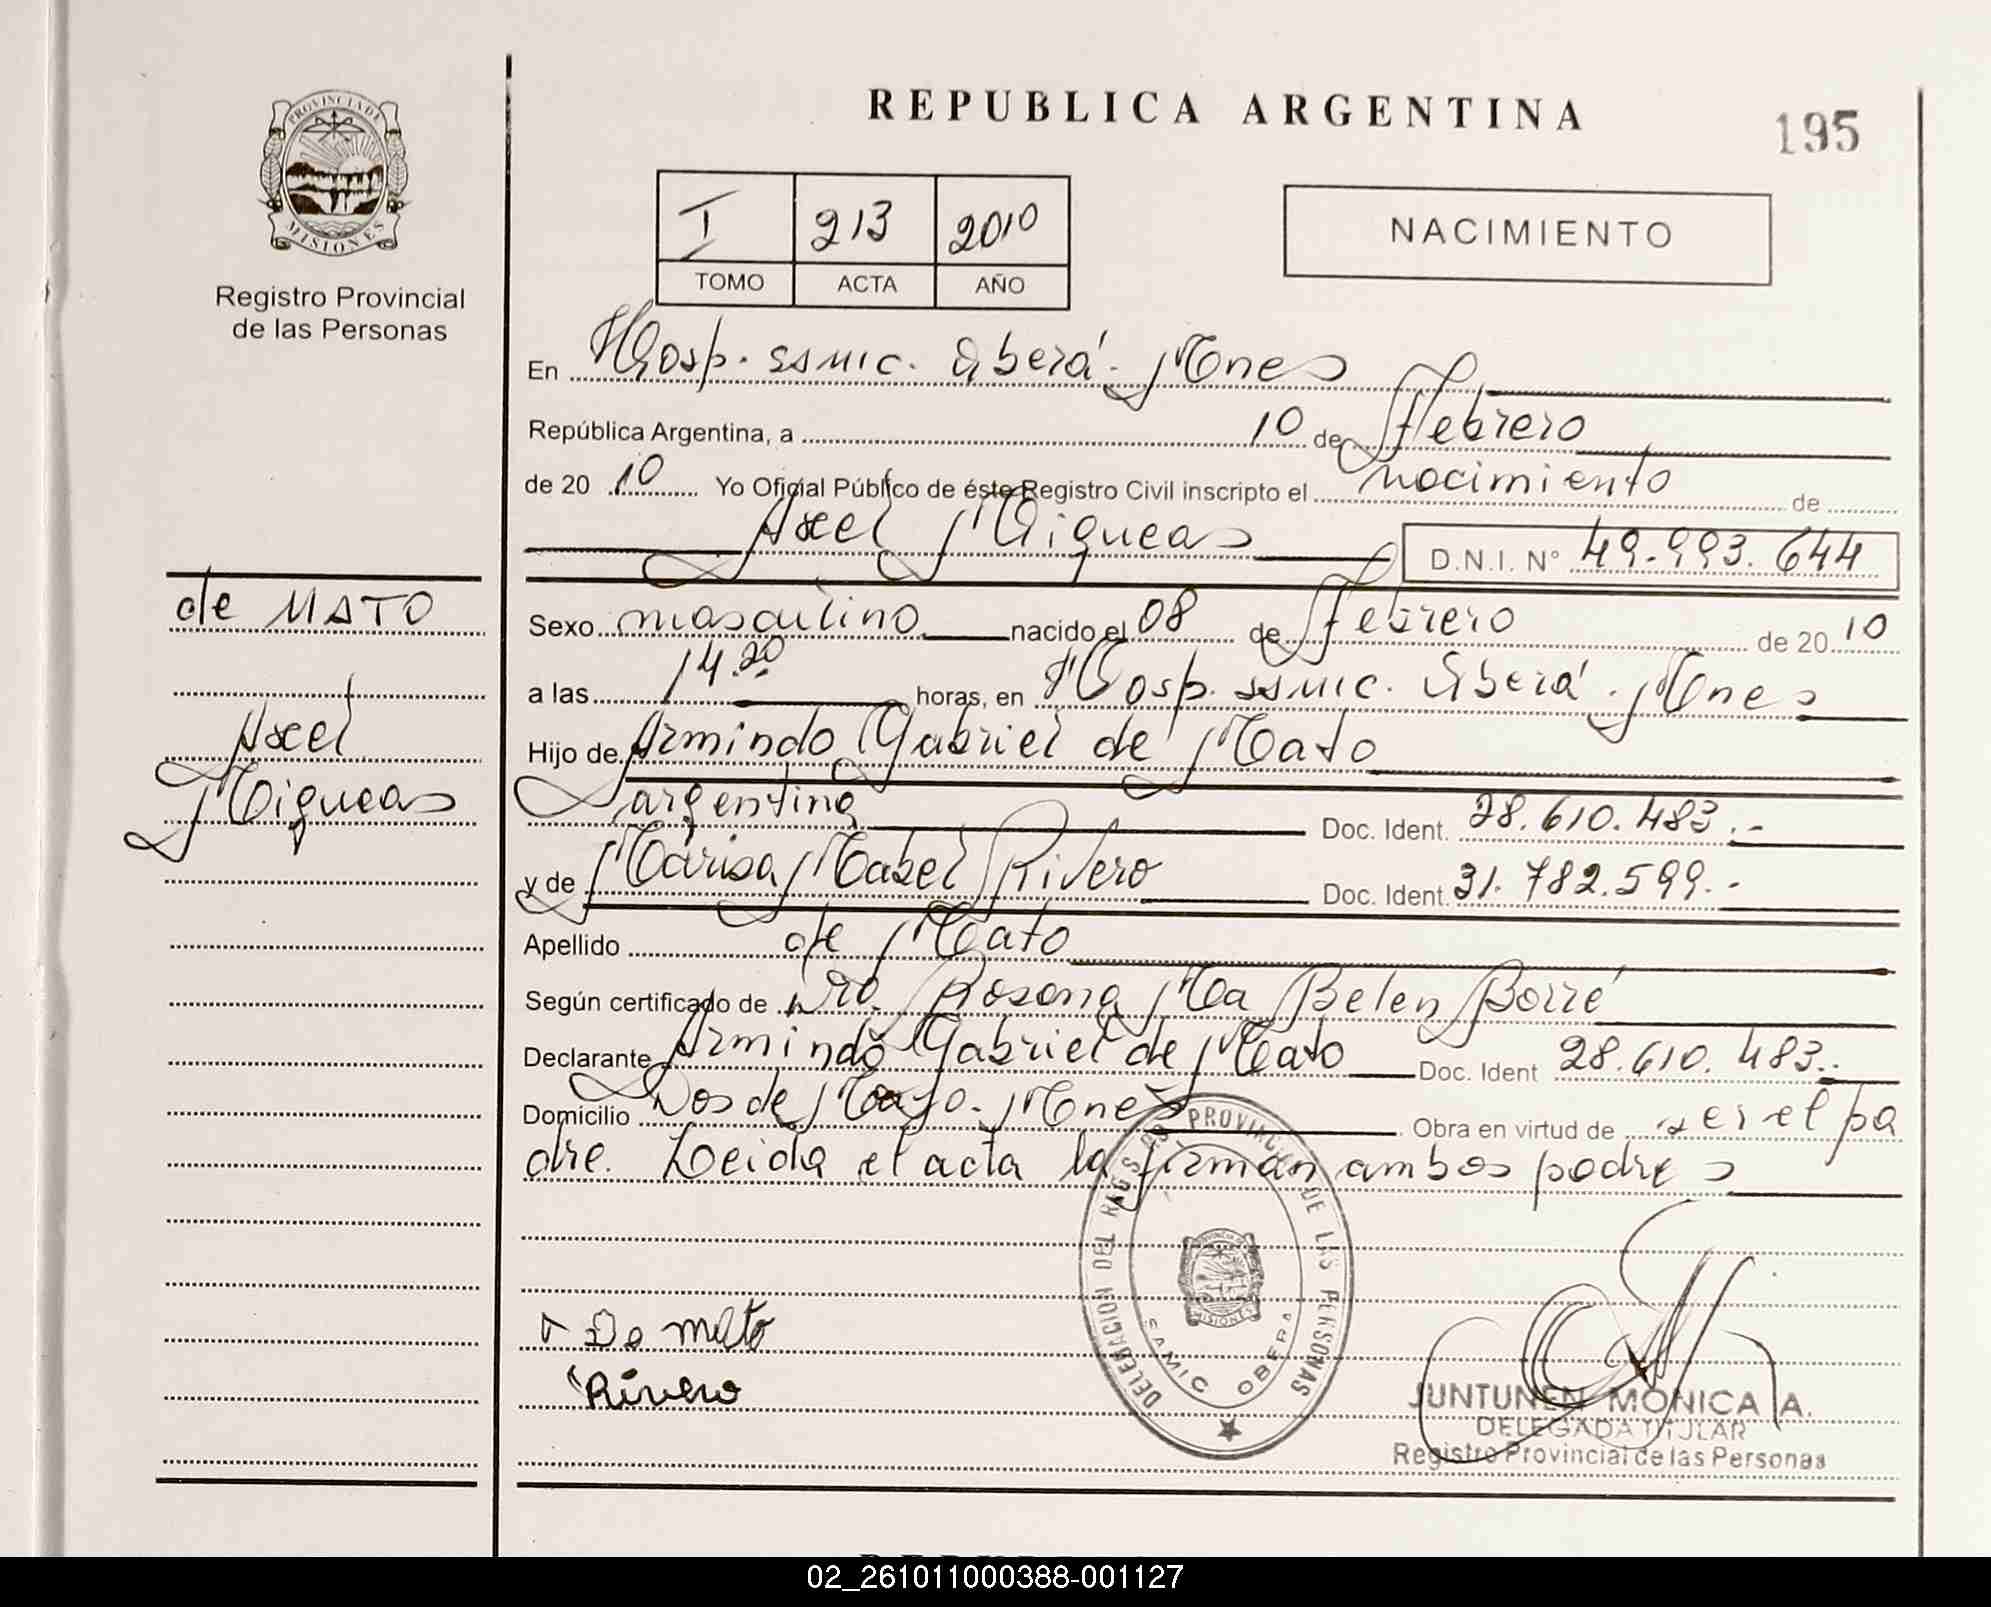 REPUBLICA ARGENTINA
195
PROVINCIA DE
MISIONES
Registro Provincial
de las Personas
I 213 2010
TOMO ACTA AÑO
NACIMIENTO
En Hosp. SSMIC. Oberá. Mnes
República Argentina, a 10 de Febrero
de 20 10 Yo Oficial Público de éste Registro Civil inscripto el nacimiento de
Axel Miqueas D.N.I. N° 49.993.644
de MATO
Axel
Miqueas
Sexo masculino nacido el 08 de Febrero de 20 10
a las 14.20 horas, en Hosp. SSMIC. Oberá. Mnes
Hijo de Armindo Gabriel de Mato
argentino Doc. Ident. 28.610.483.-
y de Marisa Mabel Rivero Doc. Ident. 31.782.599.-
Apellido de Mato
Según certificado de Dra. Rosana Ma Belen Borré
Declarante Armindo Gabriel de Mato Doc. Ident 28.610.483..
Domicilio Dos de Mayo. Mnes Obra en virtud de ser el pa
dre. Leida el acta la firman ambos padres
De mato
Rivero
DELEGACION DEL REG. PROVINCIAL DE LAS PERSONAS
SAMIC OBERA
JUNTUNEN MONICA A.
DELEGADA TITULAR
Registro Provincial de las Personas
02_261011000388-001127